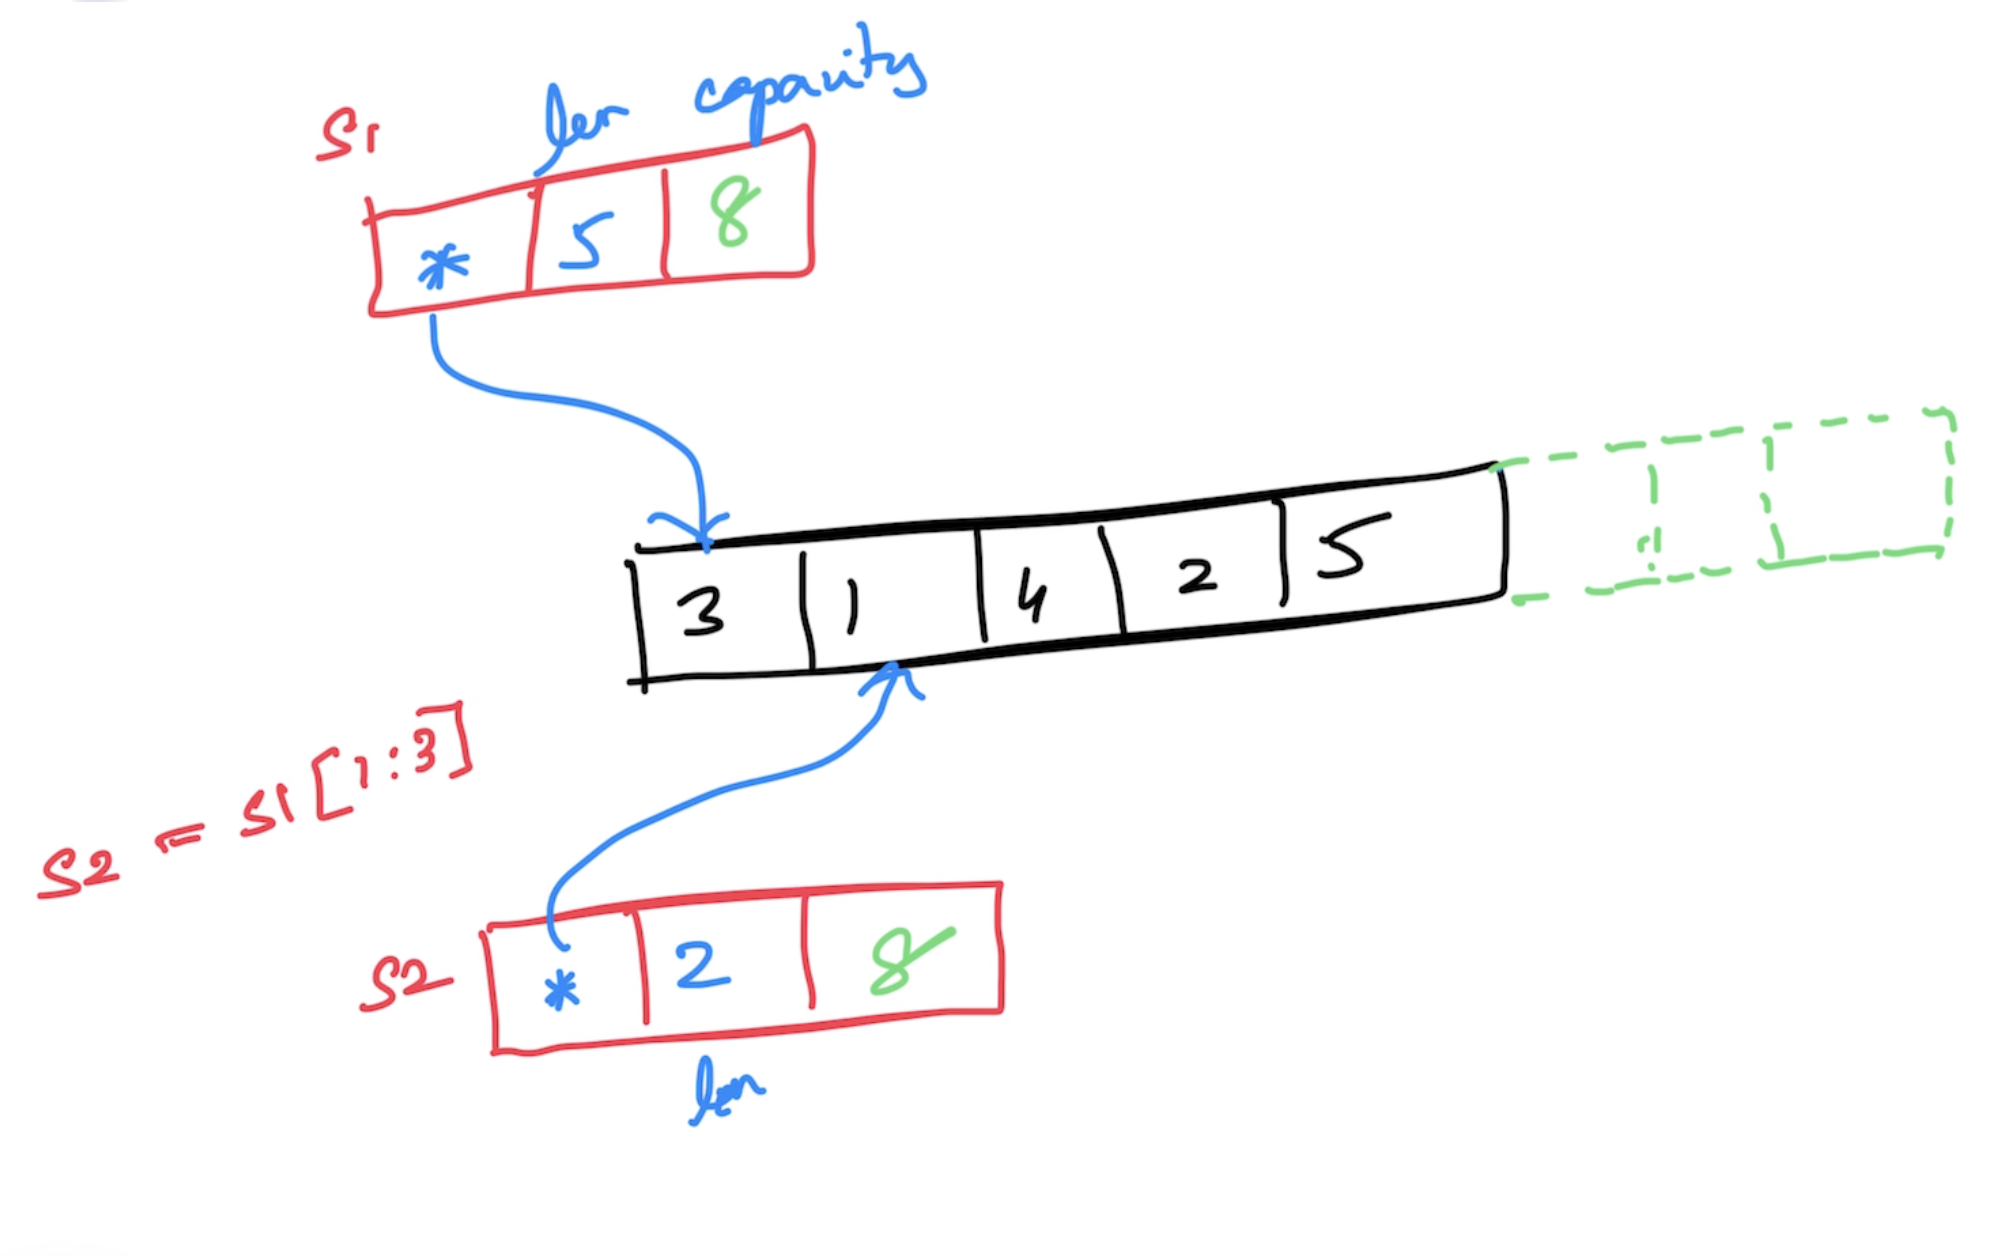 len capacity
S1
* 5 8
3 1 4 2 5
S2 = S1[1:3]
S2
* 2 8
len